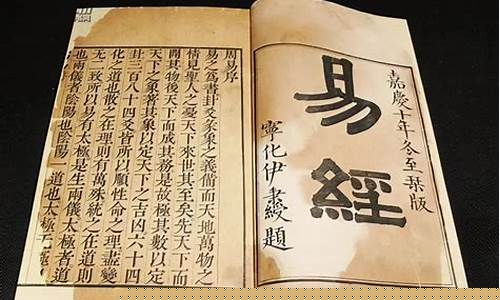 嘉慶十年冬至琹版
易經
寧化伊綬題
周易序
易之爲書卦爻彖象之義備而天地萬物之
情見聖人之憂天下來世其至矣先天下而
開其物後天下而成其務是故極其數以定
天下之象著其象以定天下之吉凶六十四
卦三百八十四爻皆所以順性命之理盡變
化之道也散之在理則有萬殊統之在道則
无二致所以易有太極是生兩儀太極者道
也兩儀者陰陽也陰陽一道也太極无